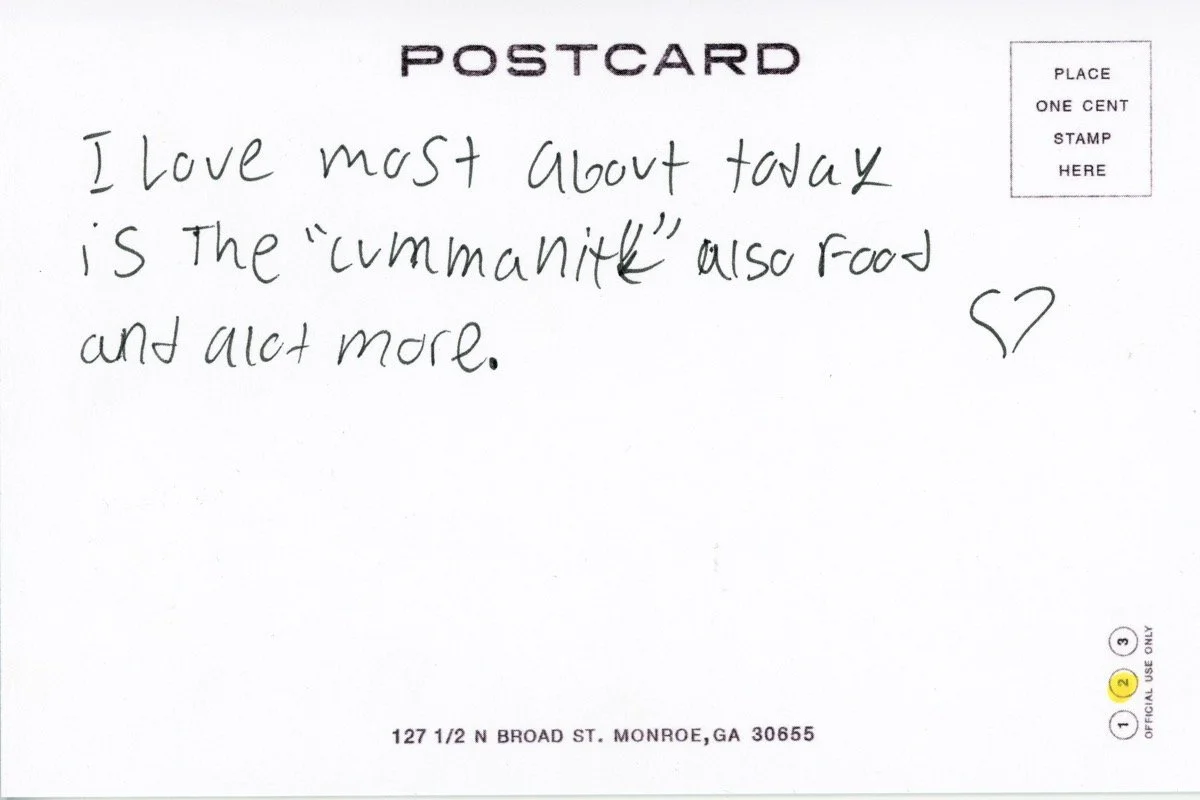 POSTCARD
PLACE
ONE CENT
STAMP
HERE
I Love most about today
is The "cummanity" also Food
and alot more.
127 1/2 N BROAD ST. MONROE, GA 30655
1 2 3
OFFICIAL USE ONLY